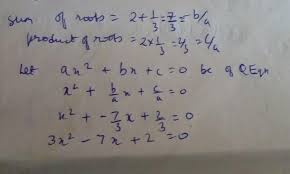 sum of roots = 2 + 1/3 = 7/3 = - b/a
product of roots = 2 x 1/3 = 2/3 = c/a
Let ax² + bx + c = 0 be q Eqn
x² + b/a x + c/a = 0
x² + -7/3 x + 2/3 = 0
3x² - 7x + 2 = 0